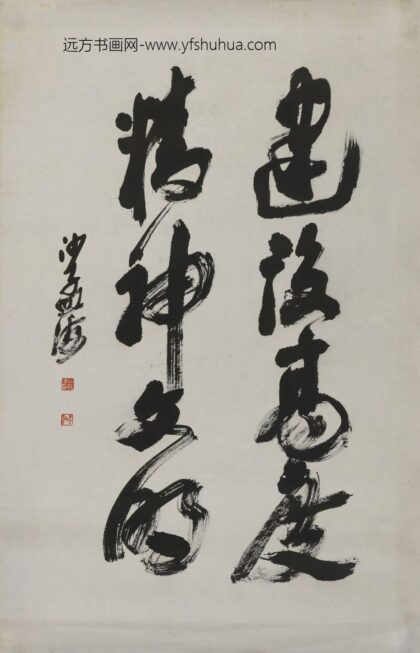 远方书画网-www.yfshuhua.com
建设高度
精神文明
沙孟海